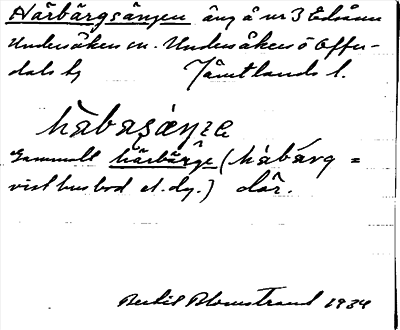 Härbärgsängen äng å nr 3 Edsåsen
Undersåkers sn. Undersåkers o Offer-
dals tg Jämtlands l.
hàbasáŋ̄ze
Gammalt härbärge (hàbárg =
visthusbod el. dy.) där.
Bertil Blomstrand 1934